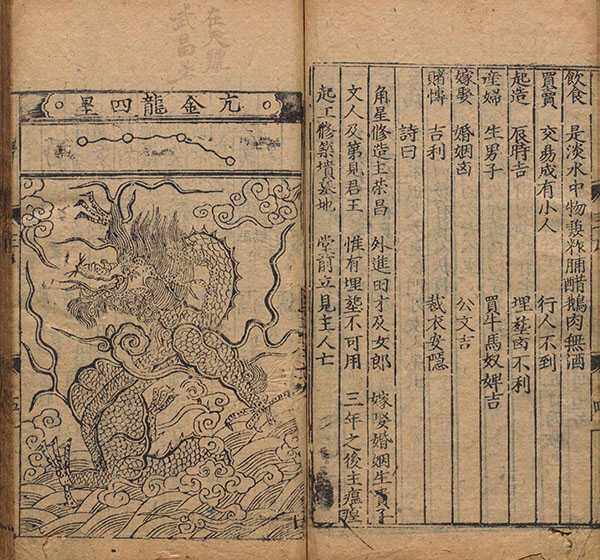 飲食 是淡水中物羹 脯醋鵝肉無酒
買賣 交易成有小人 行人不到
起造 辰時吉 埋塟凶不利
産婦 生男子 買牛馬奴婢吉
嫁娶 婚姻凶 公文吉
賭 吉利 裁衣安隱
詩曰
角星修造主荣昌 外進田才及女郎 嫁娶婚姻生貴子
文人及第見君王 惟有埋塟不可用 三年之後主瘟
起工修築墳墓地 堂前立見主人亡
亢金龍四星
在天
武昌